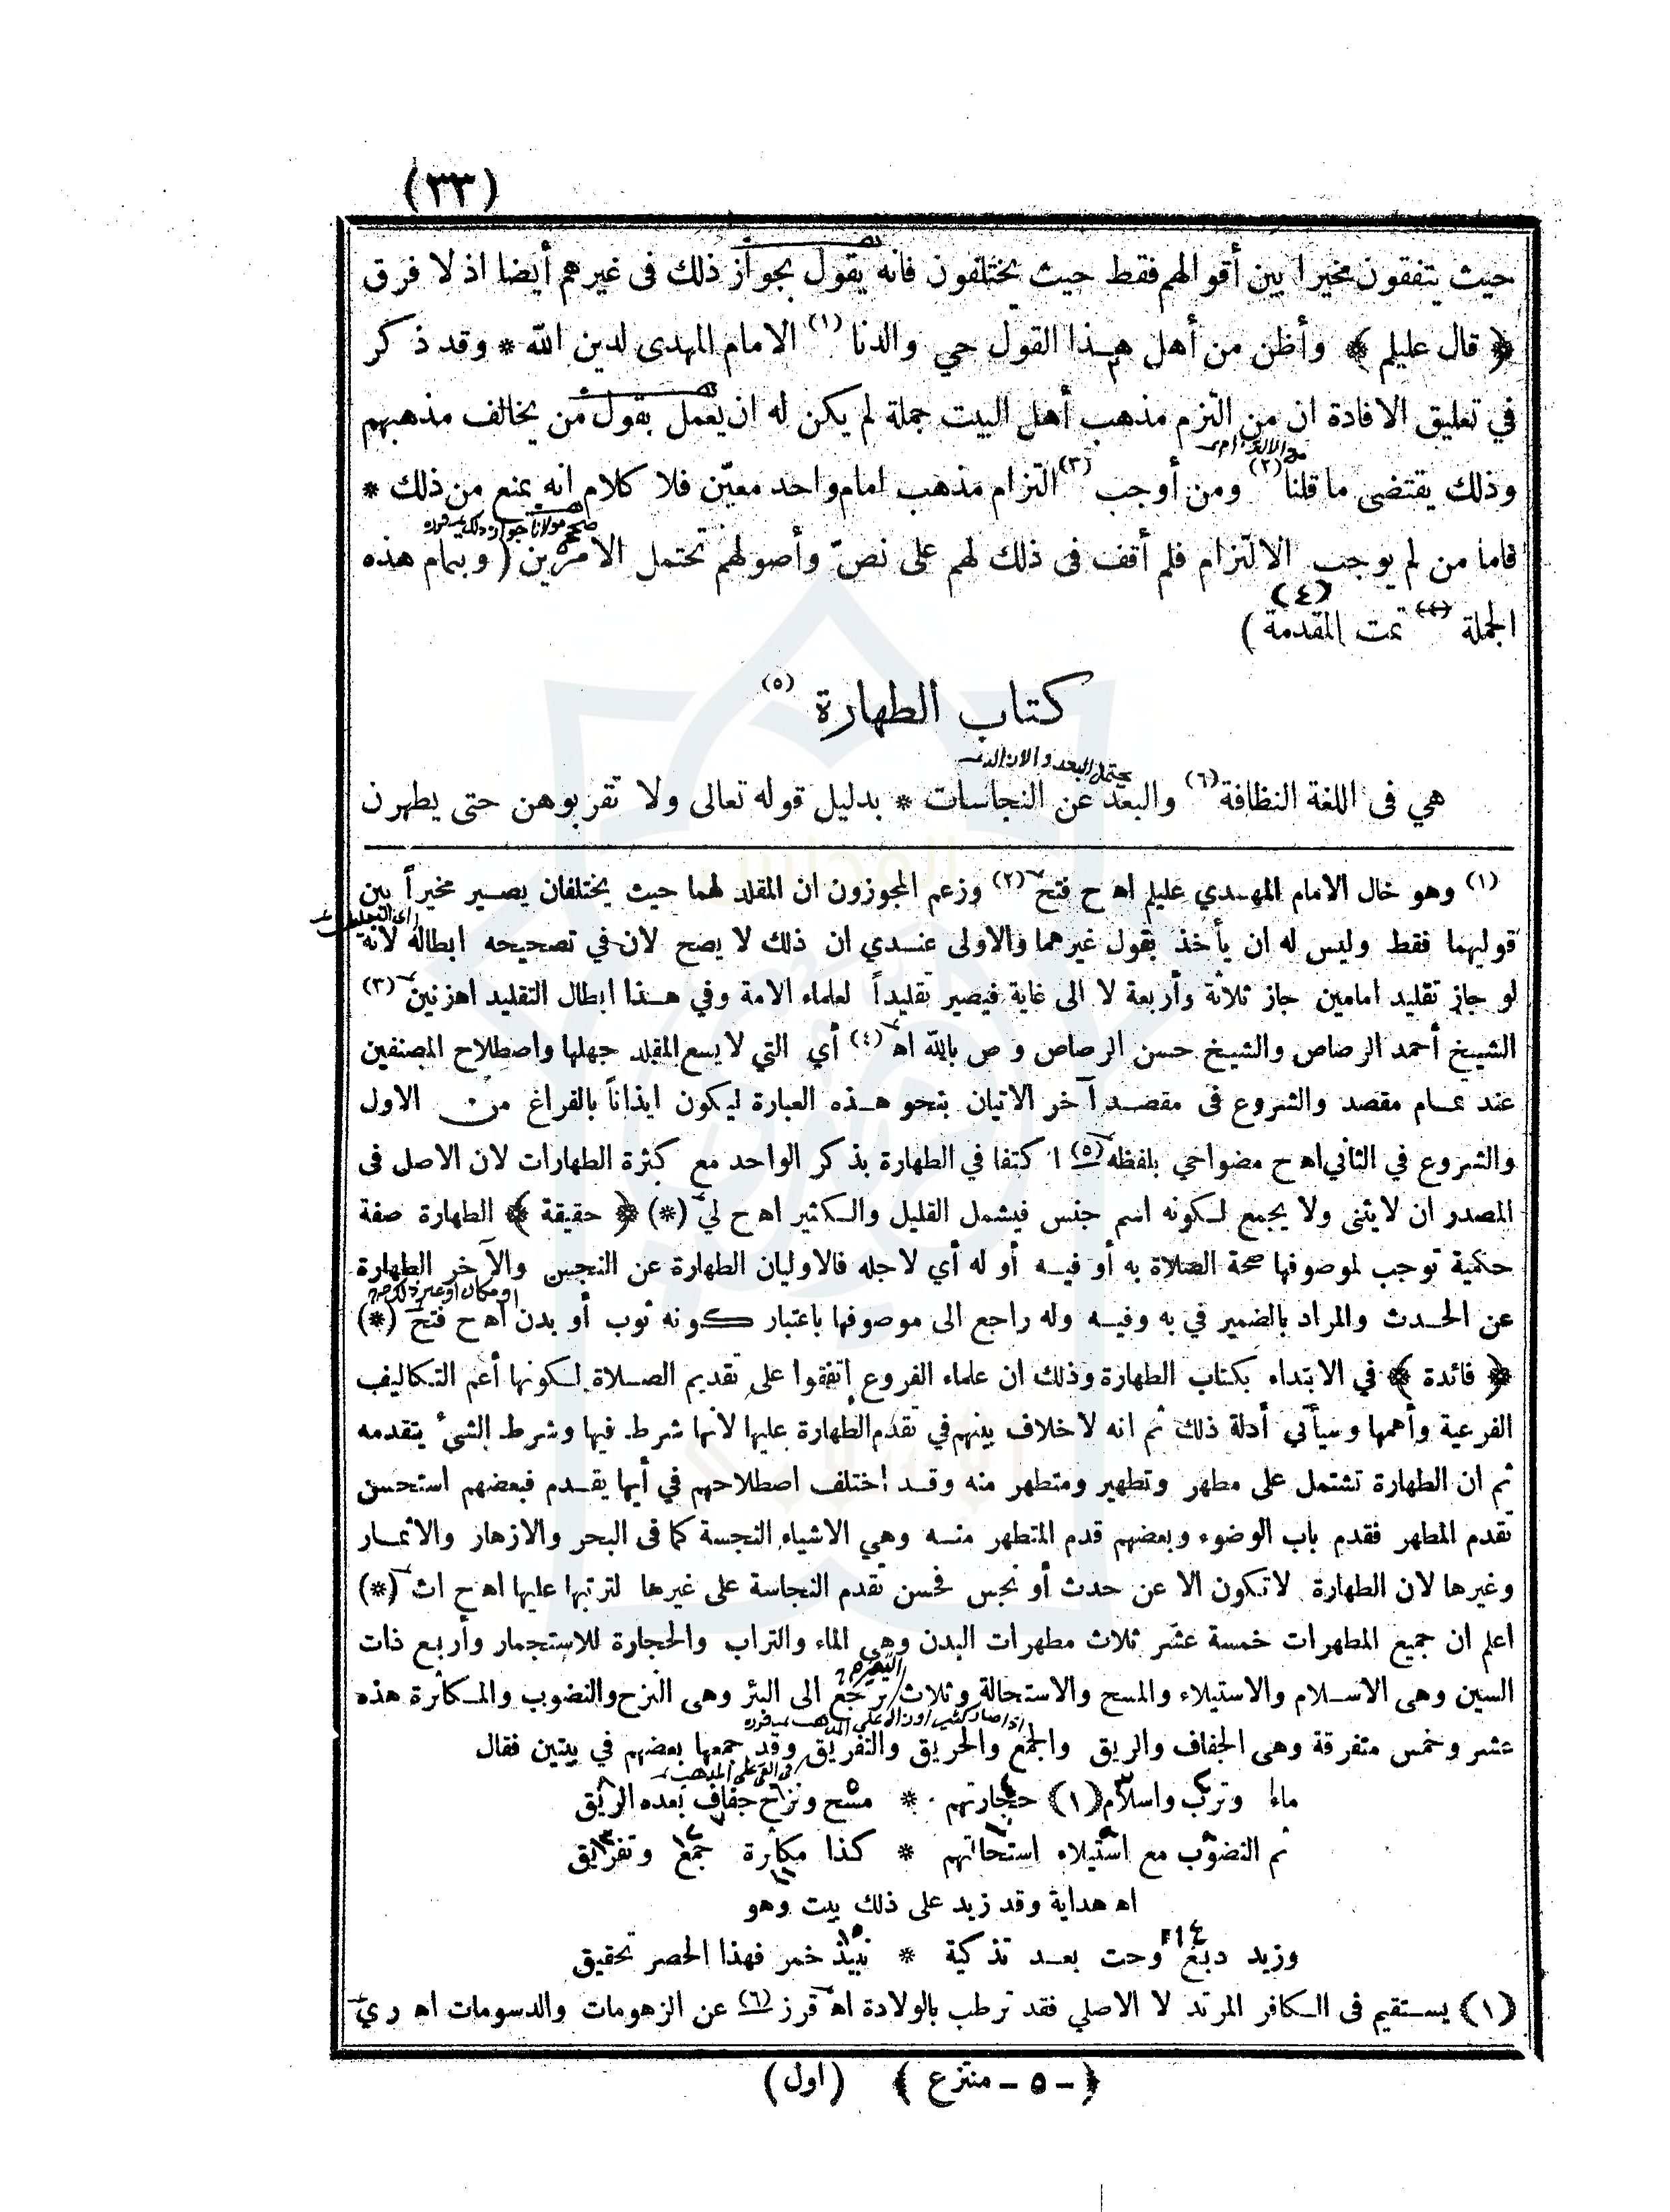 (٣٣)
حيث يتفقون مخيرا بين أقوالهم فقط حيث يختلفون فانه يقول بجواز ذلك فى غيرهم أيضا اذ لا فرق
﴿ قال عليلم ﴾ وأظن من أهل هذا القول حي والدنا (١) الامام المهدى لدين الله * وقد ذكر
في تعليق الافادة ان من التزم مذهب أهل البيت جملة لم يكن له ان يعمل بقول من يخالف مذهبهم
وذلك يقتضى ما قلنا (٢) ومن أوجب (٣) التزام مذهب امام واحد معيّن فلا كلام انه يمنع من ذلك *
فاما من لم يوجب الالتزام فلم أقف فى ذلك لهم على نصّ وأصولهم تحتمل الامرين ( وبتمام هذه
الجملة (٤) تمت المقدمة )
كتاب الطهارة (٥)
يحتمل البعد والازالة
هي فى اللغة النظافة (٦) والبعد عن النجاسات * بدليل قوله تعالى ولا تقربوهن حتى يطهرن
(١) وهو خال الامام المهدي عليلم اه ح فتح (٢) وزعم المجوزون ان المقلد لهما حيث يختلفان يصير مخيراً بين
قوليهما فقط وليس له ان يأخذ بقول غيرهما والاولى عندي ان ذلك لا يصح لان في تصحيحه ابطاله لانه
لو جاز تقليد امامين جاز ثلاثة وأربعة لا الى غاية فيصير تقليداً لعلماء الامة وفي هذا ابطال التقليد اهزنين (٣)
الشيخ أحمد الرصاص والشيخ حسن الرصاص و ص بالله اه (٤) أي التي لا يسع المقلد جهلها واصطلاح المصنفين
عند تمام مقصد والشروع فى مقصد آخر الاتيان بنحو هذه العبارة ليكون ايذاناً بالفراغ من الاول
والشروع في الثاني اه ح مضواحي بلفظه (٥) اكتفا في الطهارة بذكر الواحد مع كثرة الطهارات لان الاصل فى
المصدر ان لا يثنى ولا يجمع لكونه اسم جنس فيشمل القليل والكثير اه ح لي (*) ﴿ حقيقة ﴾ الطهارة صفة
حكمية توجب لموصوفها صحة الصلاة به أو فيه أو له أي لاجله فالاوليان الطهارة عن النجس والآخر الطهارة
او مكان او غير ذلك
عن الحدث والمراد بالضمير في به وفيه وله راجع الى موصوفها باعتبار كونه ثوب أو بدن اه ح فتح (*)
﴿ فائدة ﴾ في الابتداء بكتاب الطهارة وذلك ان علماء الفروع اتفقوا على تقديم الصلاة لكونها أعم التكاليف
الفرعية وأهمها وسيأتي أدلة ذلك ثم انه لا خلاف بينهم في تقدم الطهارة عليها لأنها شرط فيها وشرط الشئ يتقدمه
ثم ان الطهارة تشتمل على مطهر وتطهير ومتطهر منه وقد اختلف اصطلاحهم في أيها يقدم فبعضهم استحسن
تقدم المطهر فقدم باب الوضوء وبعضهم قدم المتطهر منه وهي الاشياء النجسة كما فى البحر والازهار والاثمار
وغيرها لان الطهارة لا تكون الا عن حدث أو نجس فحسن تقدم النجاسة على غيرها لترتبها عليها اه ح اث (*)
اعلم ان جميع المطهرات خمسة عشر ثلاث مطهرات البدن وهى الماء والتراب والحجارة للاستجمار وأربع ذات
السين وهى الاسلام والاستيلاء والمسح والاستحالة وثلاث ترجع الى البئر وهى النزح والنضوب والمكاثرة هذه
عشر وخمس متفرقة وهى الجفاف والريق والجمع والحريق والتفريق وقد جمعها بعضهم في بيتين فقال
ماء وترب واسلام (١) حجارتهم * مسح ونزح جفاف بعده الريق
ثم النضوب مع استيلاء استحالتهم * كذا مكاثرة جمع وتفريق
اه هداية وقد زيد على ذلك بيت وهو
وزيد دبغ وحت بعد تذكية * نبيذ خمر فهذا الحصر تحقيق
(١) يستقيم فى الكافر المرتد لا الاصلي فقد ترطب بالولادة اه قرز (٦) عن الزهومات والدسومات اه ري
﴿ – ٥ – منتزع ﴾ (اول)